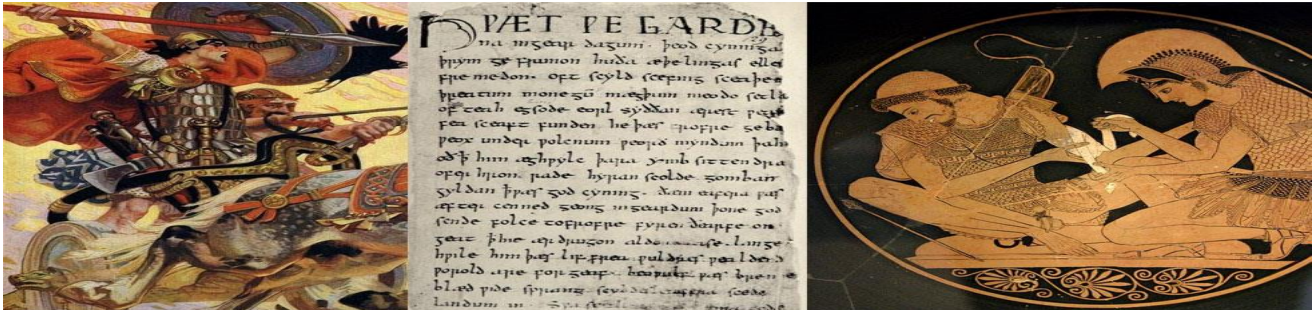 HǷÆT ǷE GARDE
na ingear dagum. þeod cyninga
þrym ge frunon huða æþelingas elle
fre medon. oft scyld scefing sceaþe
þreatum monegū mægþum meodo setla
of teah egsode eorl syððan ærest
fea sceaft funden he þæs frofre geba
ƿeox under ƿolcnum ƿeorð myndum þah
oð ꝥ him æghƿylc þara ymb sittendra
ofer hron rade hyran scolde gomban
gyldan ꝥ ƿæs god cyning. ðæm eafera ƿæs
æfter cenned geong ingeardum þone god
sende folce tofrofre fyren ðearfe on
geat ꝥ hie ær drugon aldor ase. lange
hƿile him þæs lif frea ƿuldres ƿealdend
ƿorold are for geaf. beoƿulf ƿæs breme
blæd ƿide sprang scyldes eafera scede
landum in. Sƿa